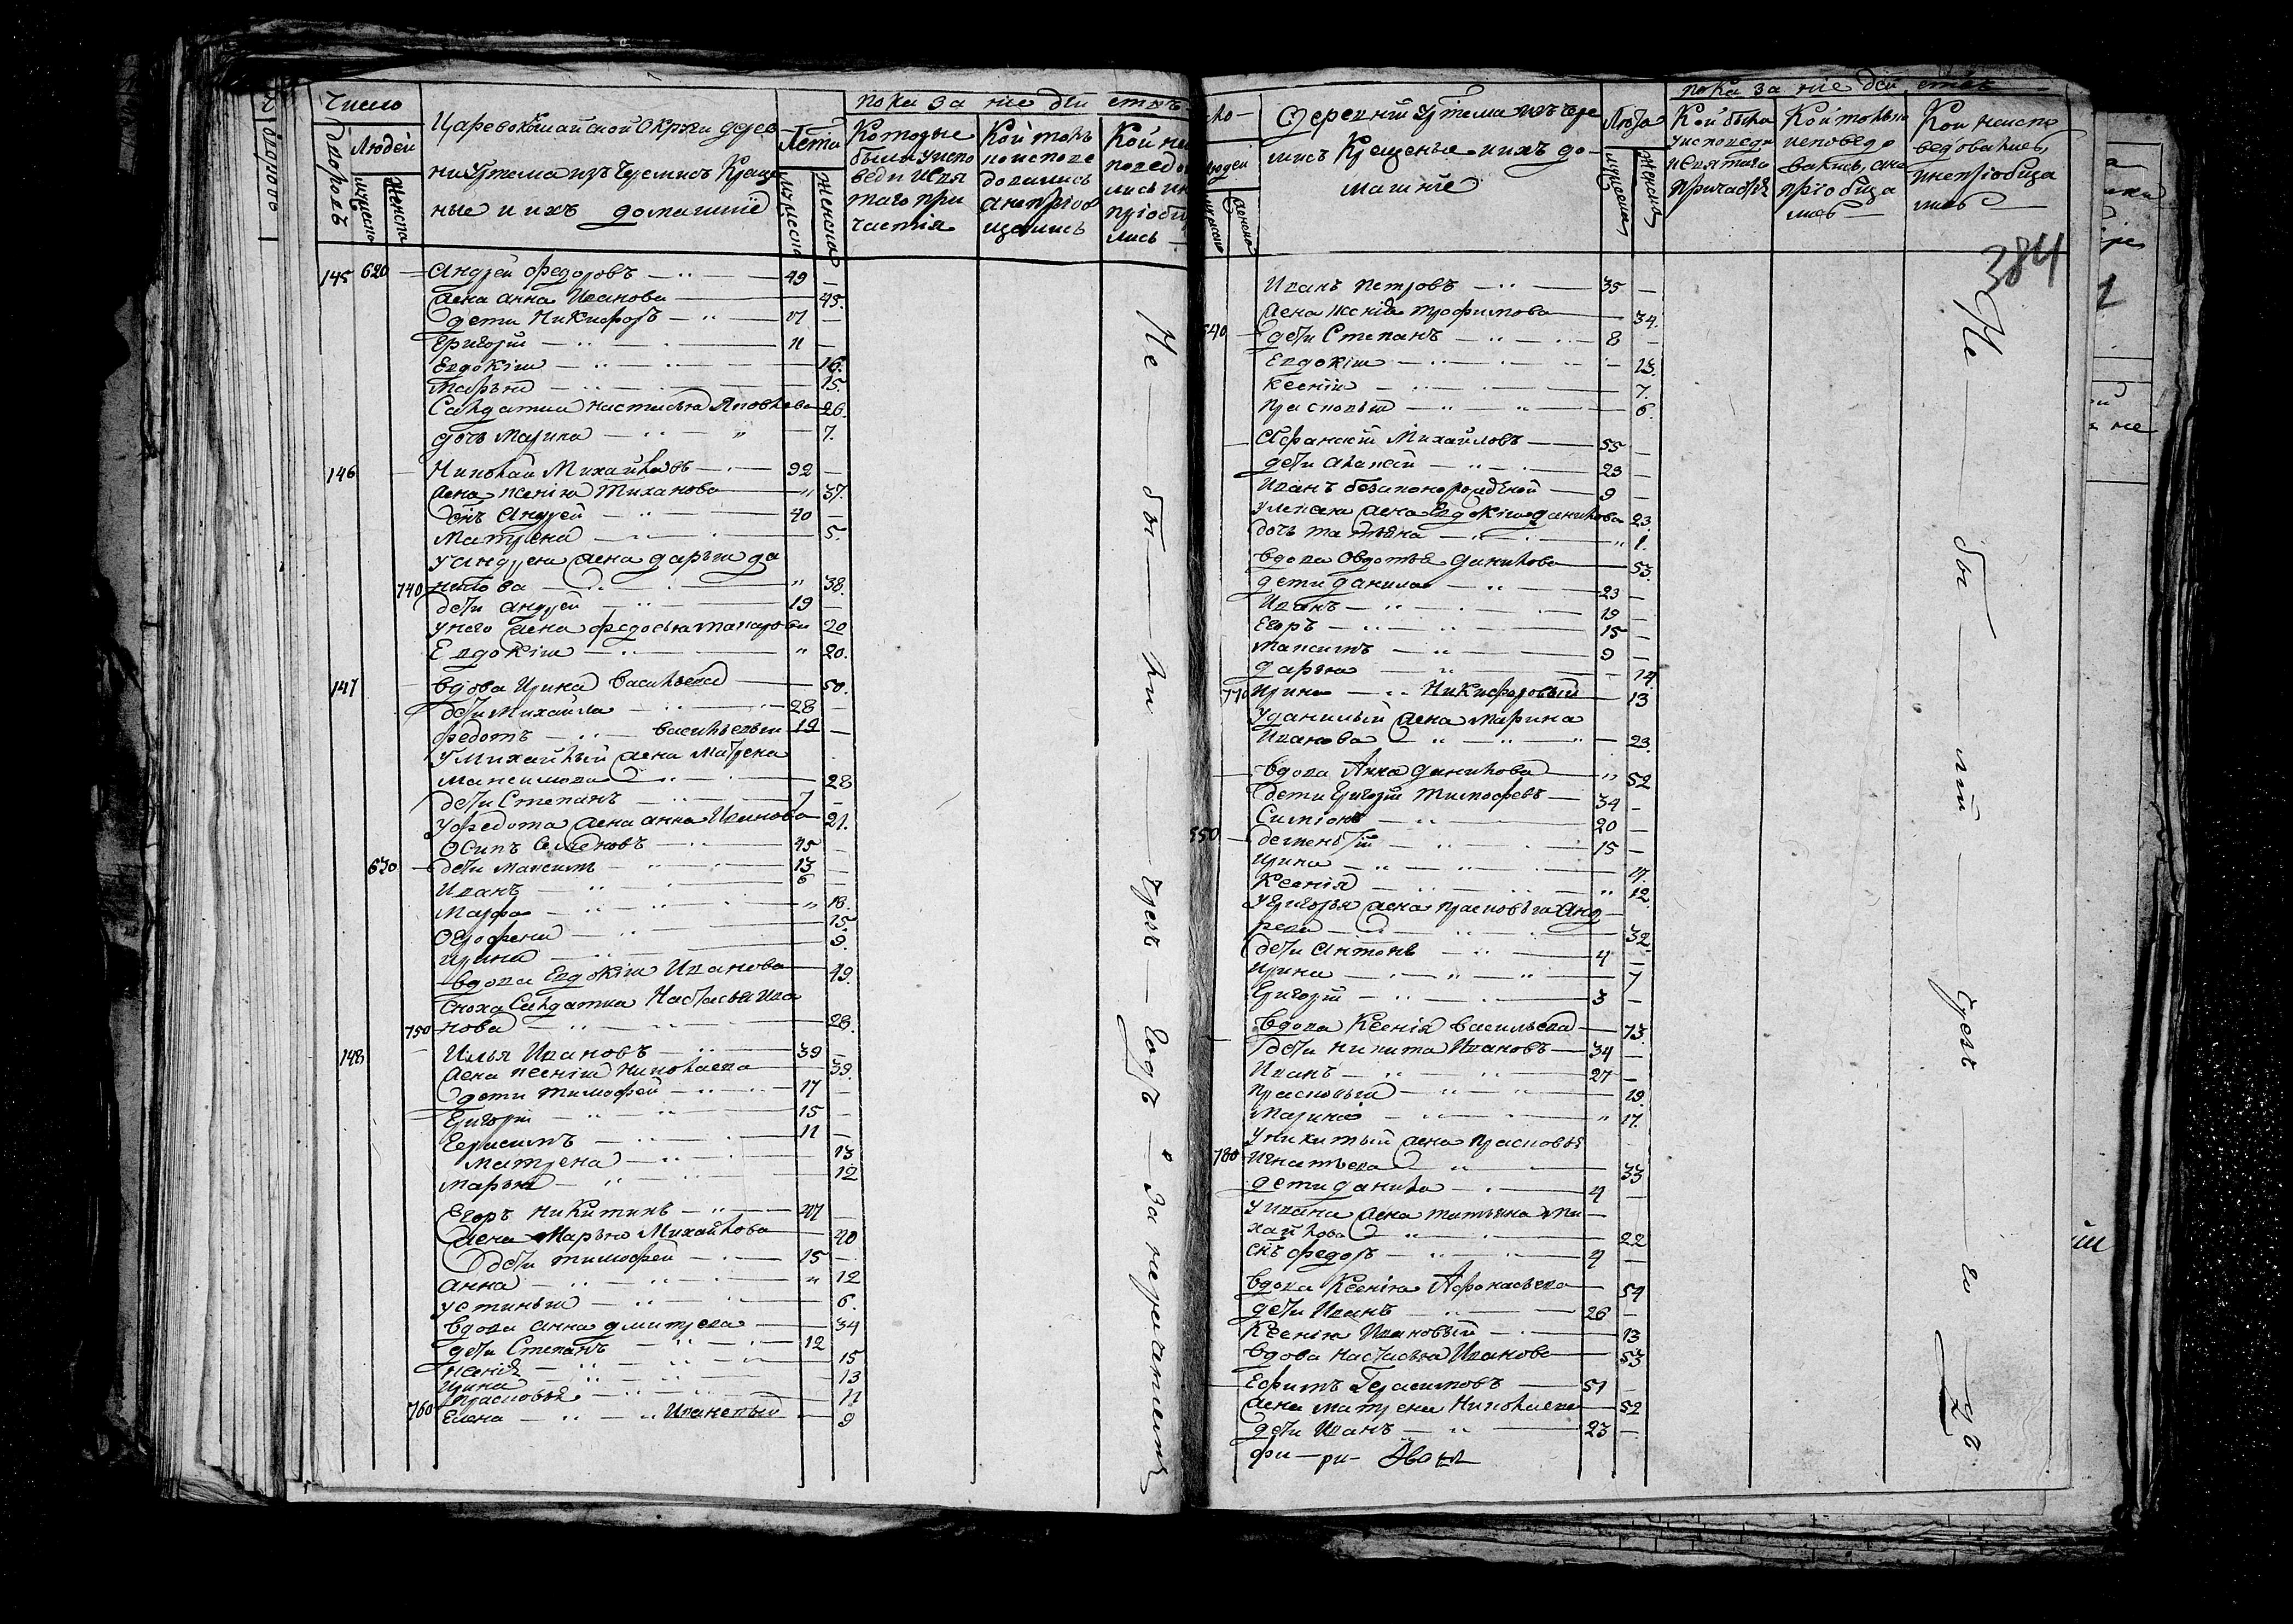 Число
Дворовъ
Людей
мужеска
женска
Царевококшайской Округи дерев
ни Уртема изъ Черемисъ Креще
ные и ихъ домашнїе
Лета
мужеска
женска
пока за нїе дѣй ствъ
Которые
были у испо
веди и свя
таго при
частїя
Кои токъ
исповѣ
довались
а не прїоб
щались
145 620 — Андрей Федоровъ — 49 —
жена Анна Иванова — 45.
дети Никифоръ —
Григорїй — 11 —
Евдокїя — 16.
Марья — 15.
Салдатка Настасья Яковлева 26.
дочь Марина — 7.
146 Николай Михайловъ — 92 —
жена Ксенїя Тиханова — 37.
сынъ Андрей — 40 —
Матрена — 5.
у Андрея жена Дарья Да
740 нилова — 38.
дѣти Андрей — 19 —
у него жена Федосья Макарова 20
Евдокїя — 20.
147 вдова Ирина Васильева — 50.
дѣти Михайла — 28 —
Федотъ — Васильевы 19 —
у Михайлы жена Матрена
Максимова — 28
дѣти Степанъ — 7 —
у Федота жена Анна Иванова 21.
Осипъ Семеновъ — 45 —
630 — дѣти Максимъ — 13 —
Иванъ — 6
Марфа — 18.
Огрофена — 15.
Ирина — 9.
вдова Евдокїя Иванова — 49.
сноха Салдатка Настасья Ива
750 нова — 28.
148 Илья Ивановъ — 39 —
жена Ксенїя Николаева — 39.
дети Тимофей — 17 —
Григорїй — 15 —
Герасимъ — 11 —
Матрена — 13
Марья — 12
Егоръ Никитинъ —
жена Марья Михайлова — 40
дѣти Тимофей — 15 —
Анна — 12
Устинья — 6.
вдова Анна Дмитрева — 34
дѣти Степанъ — 12
Ксенїя — 15
Ирина — 13
Прасковья — 11
760 Елена — Ивановы — 9
Не — бы — ли — чрезъ — Годъ — За нерачениемъ
людей
деревни Уртема изъ Чере
мисъ Крещеные и ихъ до
машнїе
Люда
мужеска
женска
пока за нїе дѣй ствъ
Кои были
у исповеди
и святаго
Причастїя
Кои токмо
исповедо
вались, а не
прїобща
лись
Кои неиспо
ведовались,
и не прїобща
лись
384
Иванъ Петровъ — 35 —
жена Ксенїя Трофимова — 34.
640 — дѣти Степанъ — 8 —
Евдокїя — 13.
Ксенїя — 7.
Прасковья — 6.
Афанасїй Михайловъ — 55 —
дѣти Алексей — 23 —
Иванъ беззаконорожденой — 9 —
у Алексея жена Евдокїя Данилова 23.
дочь Татьяна — 1.
вдова Овдотья Данилова — 53.
дети Данила — 23 —
Иванъ — 19 —
Егоръ — 15 —
Максимъ — 9 —
Дарья — 14
770 Ирина — Никифоровы — 13
у Данилы жена Марина
Иванова — 23.
вдова Анна Данилова — 52
дети Григорїй Тимофевъ — 34 —
Симїонъ — 20 —
650 — — 15 —
Ирина —
Ксенїя — 12.
у Григорья жена Прасковья Анд
реева — 32.
дѣти Антонъ — 4 —
Ирина — 7
Григорїй — 3 —
вдова Ксенїя Васильева — 73.
дѣти Никита Ивановъ — 34 —
Иванъ — 27 —
Прасковья — 19.
Марина — 17.
у Никиты жена Прасковья
780 Игнатьева — 33
дети Данила — 4 —
у Ивана жена Татьяна Ми
хайлова — 22
сынъ Федоръ — 4 —
вдова Ксенїя Афонасьева — 54
дѣти Иванъ — 26
Ксенїя Ивановы — 13
вдова Настасья Иванова — 53
Ефимъ Герасимовъ — 51 —
жена Матрена Николаева — 52
дѣти Иванъ — 23 —
Не — бы — ли — чрезъ — го — дъ